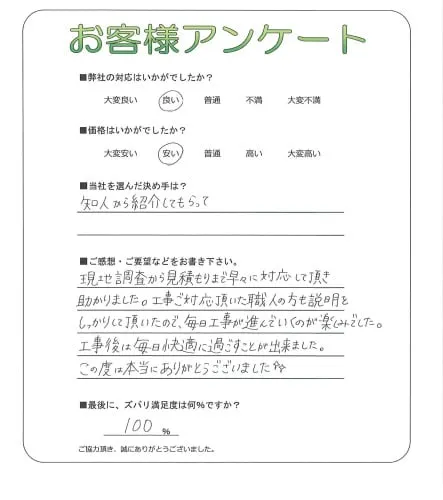 お客様アンケート
■弊社の対応はいかがでしたか?
大変良い 良い 普通 不満 大変不満
■価格はいかがでしたか?
大変安い 安い 普通 高い 大変高い
■当社を選んだ決め手は?
知人から紹介してもらって
■ご感想・ご要望などをお書き下さい。
現地調査から見積もりまで早々に対応して頂き
助かりました。工事ご対応頂いた職人の方も説明を
しっかりして頂いたので、毎日工事が進んでいくのが楽しみでした。
工事後は毎日快適に過ごすことが出来ました。
この度は本当にありがとうございました☆
■最後に、ズバリ満足度は何%ですか?
100 %
ご協力頂き、誠にありがとうございました。